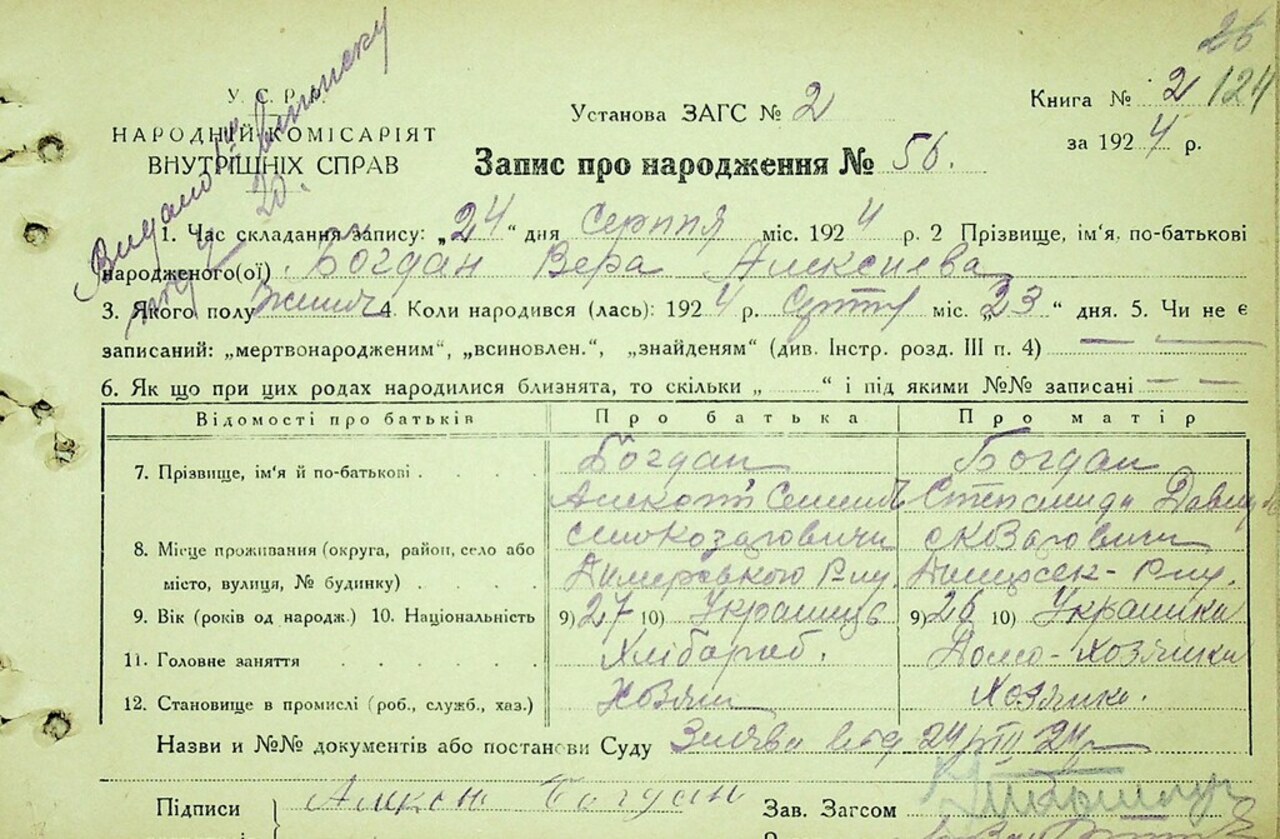 26
У. С. Р. Р.
НАРОДНІЙ КОМІСАРІЯТ
ВНУТРІШНІХ СПРАВ
Установа ЗАГС № 2
Книга № 2 124
за 1924 р.
Запис про народження № 56.
Видано выписку
1. Час складання запису: „24“ дня Серпня міс. 1924 р. 2 Прізвище, ім'я, по-батькові
народженого(ої) Богдан Вера Алексієва
3. Якого полу 4. Коли народився (лась): 1924 р. міс. „23“ дня. 5. Чи не є
записаний: „мертвонародженим“, „всиновлен.“, „знайденям“ (див. Інстр. розд. III п. 4) — —
6. Як що при цих родах народилися близнята, то скільки „ “ і під якими №№ записані — —
Відомості про батьків Про батька Про матір
7. Прізвище, ім'я й по-батькові . . . . Богдан Богдан
Степанида
8. Місце проживання (округа, район, село або
місто, вулиця, № будинку) . . Димерського
9. Вік (років од народж.) 10. Національність 9) 27 10) Украинець 9) 26 10) Украинка
11. Головне заняття . . . . . Хлібароб. Домо-хозяйка
12. Становище в промислі (роб., служб., хаз.) Хозяин Хозяйка.
Назви и №№ документів або постанови Суду Заява від 24/VIII 24 р
Підписи Богдан Зав. Загсом